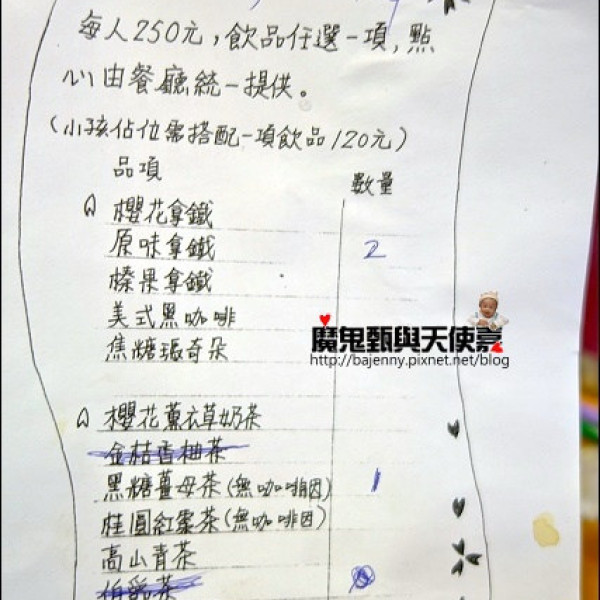 每人250元，飲品任選一項，點
心由餐廳統一提供。
(小孩佔位需搭配一項飲品120元)
品項 數量
櫻花拿鐵
原味拿鐵 2
榛果拿鐵
美式黑咖啡
焦糖瑪奇朵
魔鬼甄與天使嘉
http://bajenny.pixnet.net/blog
櫻花薰衣草奶茶
金桔香柚茶
黑糖薑母茶(無咖啡因) 1
桂圓紅棗茶(無咖啡因)
高山青茶